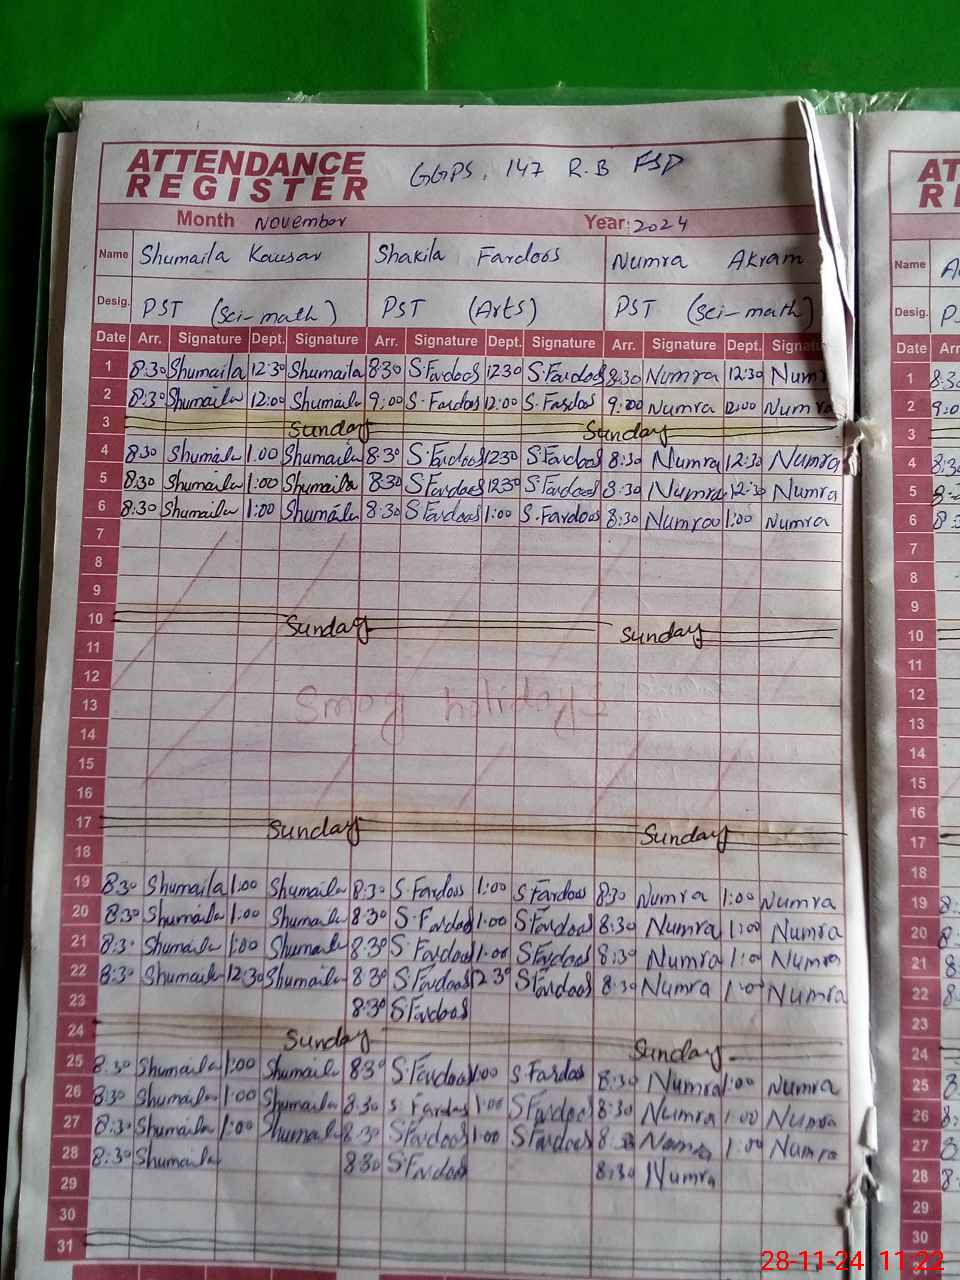 ATTENDANCE
REGISTER
GGPS, 147 R.B FSD
Month November Year: 2024
Name Shumaila Kausar Shakila Fardoos Numra Akram
Desig. PST (Sci-math) PST (Arts) PST (Sci-math)
Date Arr. Signature Dept. Signature Arr. Signature Dept. Signature Arr. Signature Dept. Signatu
1 8:30 Shumaila 12:30 Shumaila 8:30 S.Fardoos 12:30 S.Fardoos 8:30 Numra 12:30 Num
2 8:30 Shumaila 12:00 Shumaila 9:00 S.Fardoos 12:00 S.Fardoos 9:00 Numra 12:00 Numra
3 Sunday Sunday
4 8:30 Shumaila 1:00 Shumaila 8:30 S.Fardoos 12:30 S.Fardoos 8:30 Numra 12:30 Numra
5 8:30 Shumaila 1:00 Shumaila 8:30 S.Fardoos 12:30 S.Fardoos 8:30 Numra 12:30 Numra
6 8:30 Shumaila 1:00 Shumaila 8:30 S.Fardoos 1:00 S.Fardoos 8:30 Numra 1:00 Numra
7
8
9
10 Sunday Sunday
11
12
13 Smog holidays
14
15
16
17 Sunday Sunday
18
19 8:30 Shumaila 1:00 Shumaila 8:30 S.Fardoos 1:00 S.Fardoos 8:30 Numra 1:00 Numra
20 8:30 Shumaila 1:00 Shumaila 8:30 S.Fardoos 1:00 S.Fardoos 8:30 Numra 1:00 Numra
21 8:30 Shumaila 1:00 Shumaila 8:30 S.Fardoos 1:00 S.Fardoos 8:30 Numra 1:00 Numra
22 8:30 Shumaila 12:30 Shumaila 8:30 S.Fardoos 12:30 S.Fardoos 8:30 Numra 1:00 Numra
23 8:30 S.Fardoos
24 Sunday Sunday
25 8:30 Shumaila 1:00 Shumaila 8:30 S.Fardoos 1:00 S.Fardoos 8:30 Numra 1:00 Numra
26 8:30 Shumaila 1:00 Shumaila 8:30 S.Fardoos 1:00 S.Fardoos 8:30 Numra 1:00 Numra
27 8:30 Shumaila 1:00 Shumaila 8:30 S.Fardoos 1:00 S.Fardoos 8:30 Numra 1:00 Numra
28 8:30 Shumaila 8:30 S.Fardoos 8:30 Numra
29
30
31
Name
Desig.
Date
1 8:30
2 9:0
3
4 8:30
5
6
7
8
9
10
11
12
13
14
15
16
17
18
19
20
21
22
23
24
25
26
27
28
29
30
28-11-24 11:22